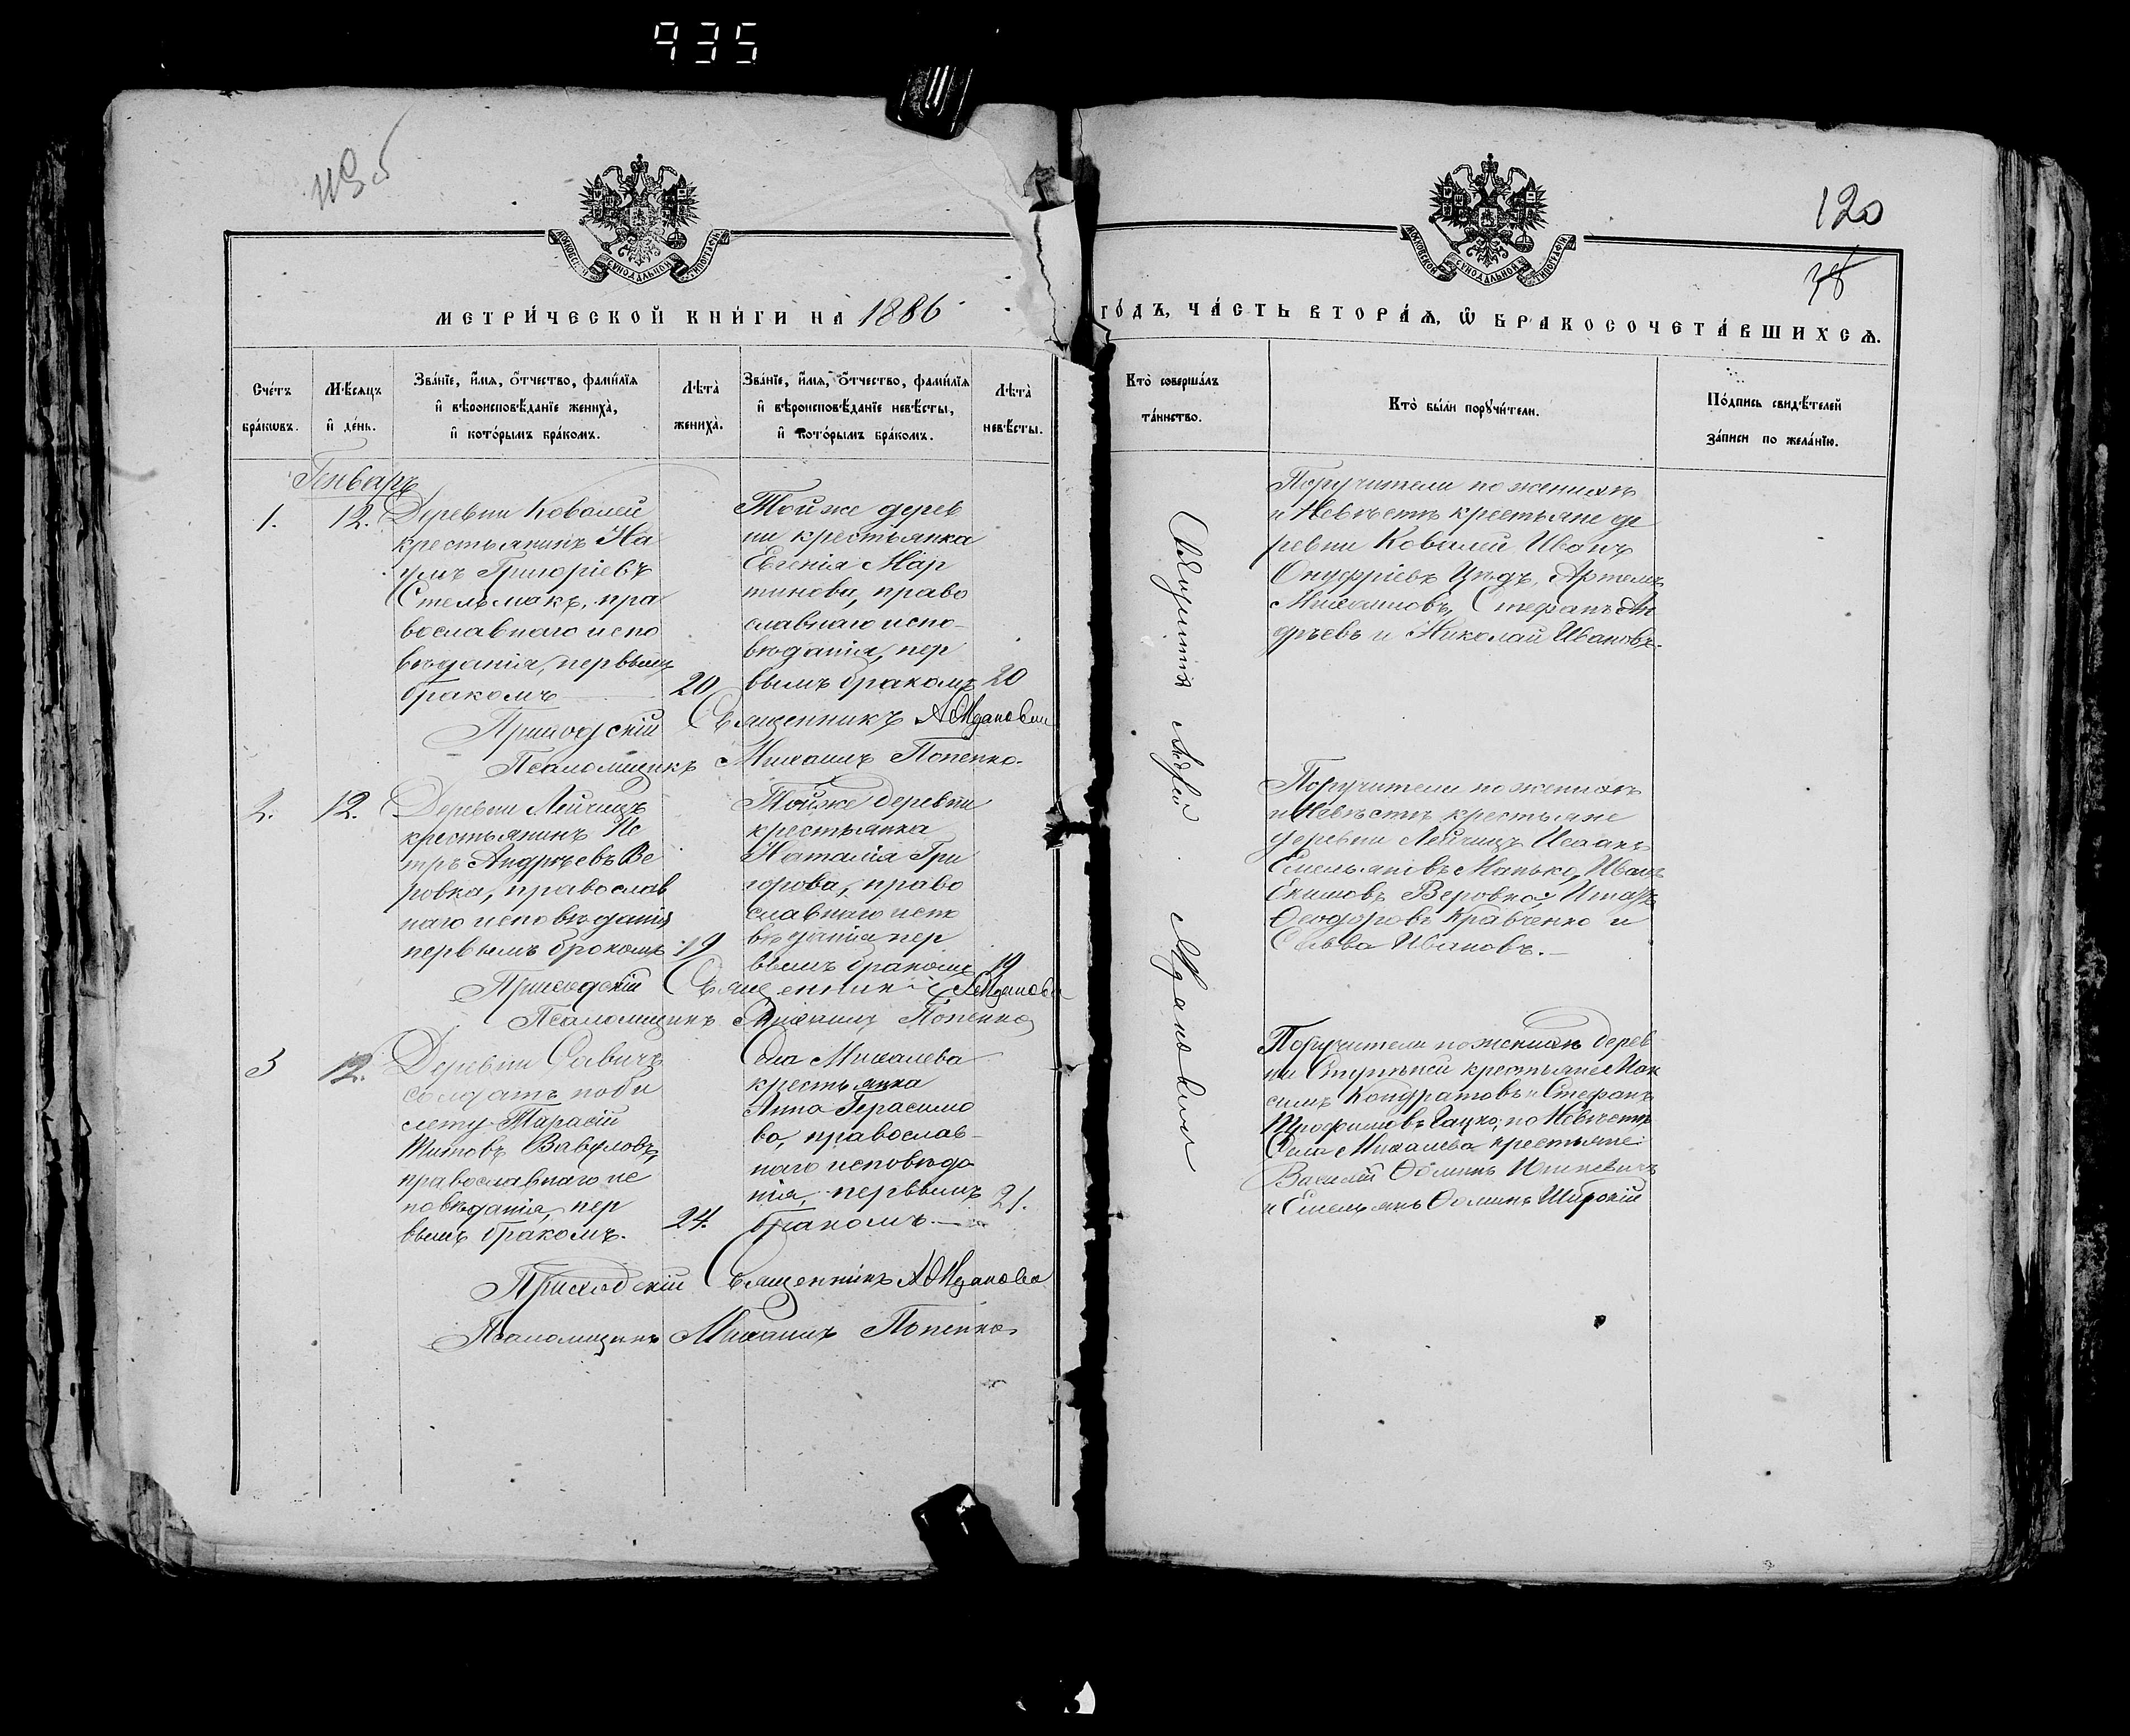 935
120
38
МОСКОВСКОЙ СѴНОДАЛЬНОЙ ТИПОГРАФІИ
МОСКОВСКОЙ СѴНОДАЛЬНОЙ ТИПОГРАФІИ
МЕТРИ́ЧЕСКОЙ КНИ́ГИ НА 1886 ГО́ДЪ, ЧА́СТЬ ВТОРА́Ѧ, Ѿ БРАКОСОЧЕТА́ВШИХСѦ.
Сче́тъ
бра́кѡвъ.
Мѣ́сяцъ
и҆ де́нь.
Зва́нїе, и҆́мя, ѻ҆́тчество, фами́лїя
и҆ вѣроисповѣ́данїе жениха̀,
и҆ кото́рымъ бра́комъ.
Лѣ́та
жениха̀.
Зва́нїе, и҆́мя, ѻ҆́тчество, фами́лїя
и҆ вѣроисповѣ́данїе невѣ́сты,
и҆ кото́рымъ бра́комъ.
Лѣ́та
невѣ́сты.
Кто̀ соверша́лъ
та́инство.
Кто̀ бы́ли порꙋчи́тели.
По́дпись свидѣ́телей
за́писи по жела́нїю.
Генварь
1.
12.
Деревни Ковалей
крестьянинъ На
умъ Григоріевъ
Стельмахъ, пра
вославнаго испо
вѣданія, первымъ
бракомъ
20
Той же дерев
ни крестьянка
Евгенія Мар
тинова, право
славнаго испо-
вѣданія, пер
вымъ бракомъ
20
Поручители по женихѣ
и Невѣстѣ крестьяне де
ревни Ковалей Иванъ
Онуфріевъ Цѣдъ, Артемъ
Михаиловъ, Стефанъ Ан
дреевъ и Николай Ивановъ.
Приходскій Священникъ А Жданович
Псаломщикъ Михаилъ Попенко.
2.
12.
Деревни Лейчицъ
крестьянинъ Пе
тръ Андреевъ Ве
ровка, православ
наго исповѣданія
первымъ бракомъ
19
Той же деревни
крестьянка
Наталія Гри
горова, право
славнаго испо
вѣданія пер
вымъ бракомъ
19
Поручители по женихѣ
и Невѣстѣ крестьяне
деревни Лейчицъ Исаакъ
Емельяновъ Манько, Иванъ
Екимовъ Веровка, Игнатъ
Ѳеодоровъ Кравченко и
Савва Ивановъ.
Приходскій Священникъ А Жданови
Псаломщикъ Михаилъ Попенко
3
12.
Деревни Савичъ
солдатъ по би
лету Тарасій
Титовъ Вавуловъ,
православнаго ис
повѣданія, пер
вымъ бракомъ.
24.
Села Михалева
крестьянка
Анна Герасимо
ва, православ-
наго исповѣда
нія, первымъ
бракомъ.
21.
Поручители по женихѣ дерев
ни Ступѣней крестьяне Мак
симъ Кондратовъ и Стефанъ
Трофимовъ Гацко, по Невѣстѣ
Села Михалева крестьяне
Василій Ѳоминъ
и Емельянъ Ѳоминъ Широкій
Приходскій Священникъ А Жданови
Псаломщикъ Михаилъ Попенко
Священникъ Андрей Жданович